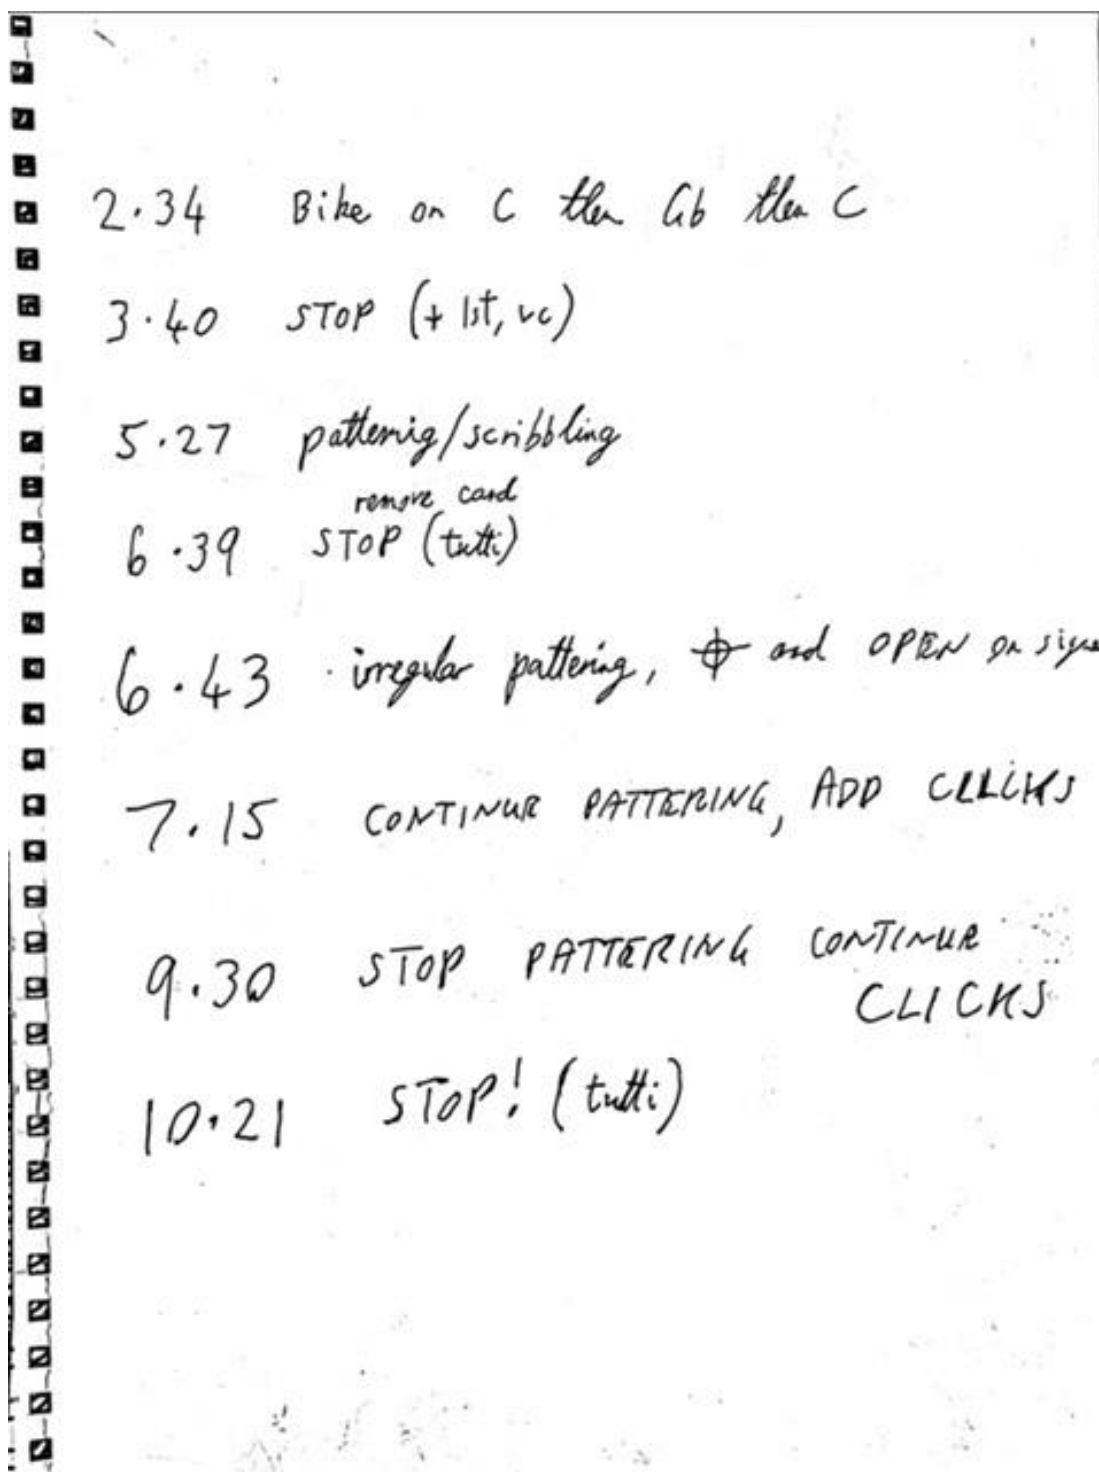 2.34 Bike on C then Gb then C
3.40 STOP (+ 1st, vc)
5.27 patternig/scribbling
remove card
6.39 STOP (tutti)
6.43 irregular pattering, and OPEN on signa
7.15 CONTINUE PATTERING, ADD CLLCKS
9.30 STOP PATTERING CONTINUE
CLICKS
10.21 STOP! (tutti)